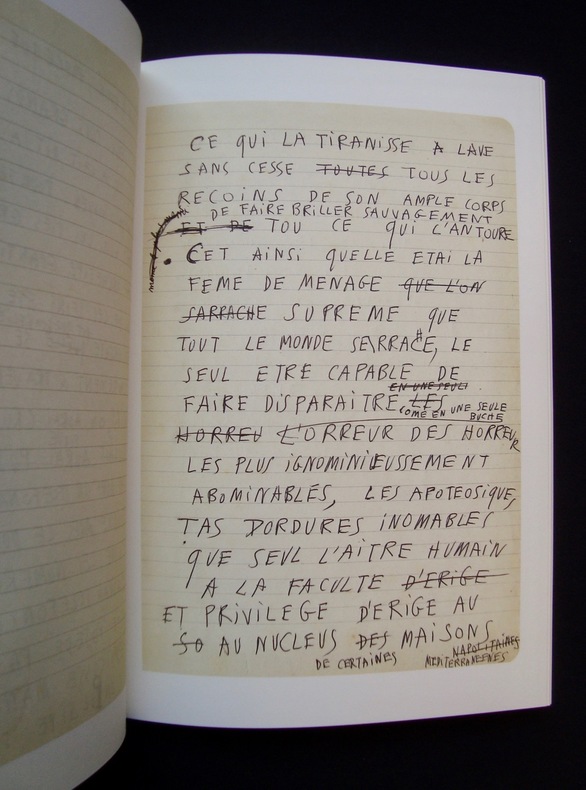 CE QUI LA TIRANISSE A LAVE
SANS CESSE TOUTES TOUS LES
RECOINS DE SON AMPLE CORPS
DE FAIRE BRILLER SAUVAGEMENT
ET DE TOU CE QUI L'ANTOURE
CET AINSI QUELLE ETAI LA
FEME DE MENAGE QUE L'ON
SARRACHE SUPREME QUE
TOUT LE MONDE SERRACHE, LE
SEUL ETRE CAPABLE DE
EN UNE SEULE
FAIRE DISPARAITRE LES
COME EN UNE SEULE
BUCHE
HORREU L'ORREUR DES HORREUR
LES PLUS IGNOMINIEUSSEMENT
ABOMINABLES, LES APOTEOSIQUE,
TAS DORDURES INOMABLES
QUE SEUL L'AITRE HUMAIN
A LA FACULTE D'ERIGE
ET PRIVILEGE D'ERIGE AU
SO AU NUCLEUS DES MAISONS
NAPOLITAINES
DE CERTAINES MEDITERRANEENES